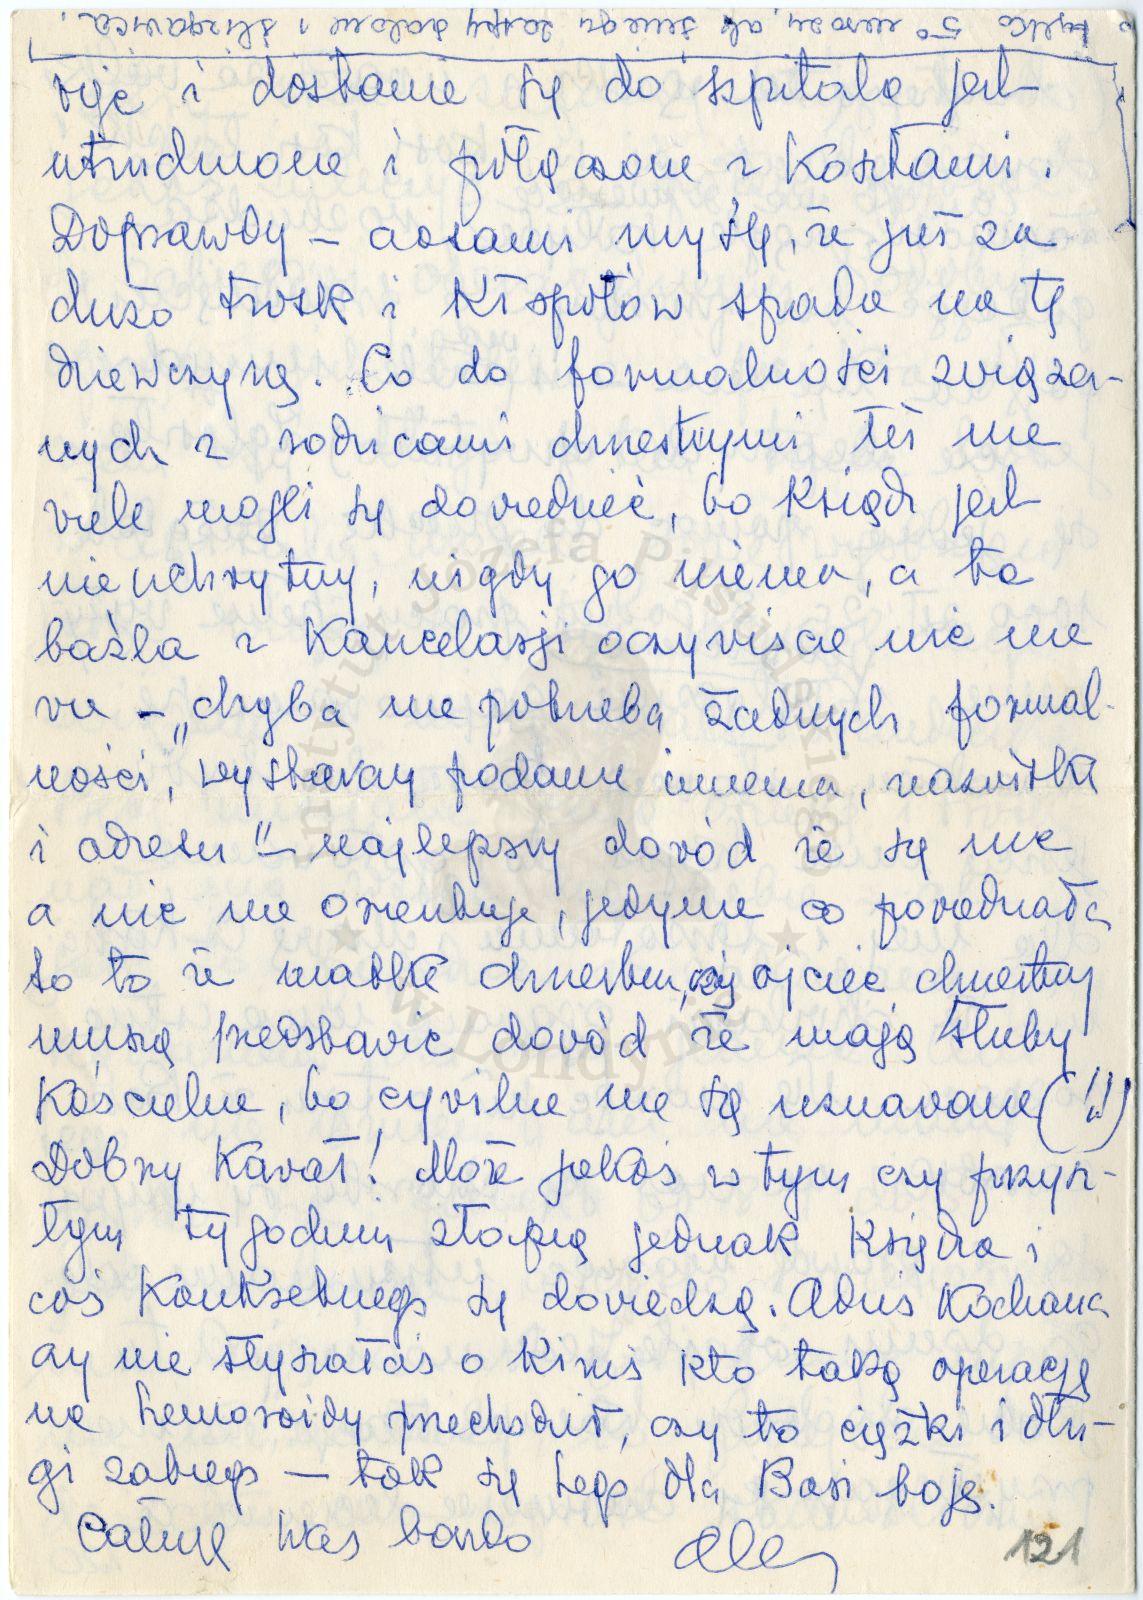 tylko 5° mrozu, ale śniegu zaspy szalone i ślizgawica.
cyjć i dostanie się do szpitala jest
utrudnione i połączone z kosztami.
Doprawdy – czasami myślę, że już za
dużo trosk i kłopotów spada na tę
dziewczynę. Co do formalności związa-
nych z rodzicami chrzestnymi też nie
wiele mogli się dowiedzieć, bo ksiądz jest
nieuchwytny, nigdy go niema, a ta
baźla z kancelarji oczywiście nic nie
wie – „chyba nie potrzeba żadnych formal-
ności, wystarczy podanie imienia, nazwiska
i adresu" – najlepszy dowód że się nic
a nic nie orientuje, jedyne co powiedziała
to to że matka chrzestna, czy ojciec chrzestny
muszą przedstawić dowód że mają śluby
kościelne, bo cywilne nie są uznawane (!!)
Dobry kawał! Może jakoś w tym czy przysz-
łym tygodniu złapią jednak księdza i
coś konkretnego się dowiedzą. Aduś kochana
czy nie słyszałaś o kimś kto taką operację
na hemoroidy przechodził, czy to ciężki i dłu-
gi zabieg – tak się tego dla Basi boję.
Całuję Was bardo
121
Instytut Józefa Piłsudskiego
w Londynie